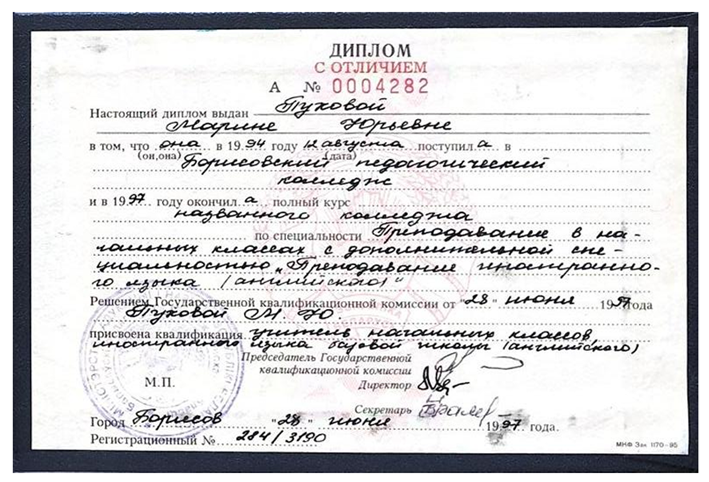 ДИПЛОМ
С ОТЛИЧИЕМ
А № 0004282
Настоящий диплом выдан Пуховой
Марине Юрьевне
в том, что она в 1994 году 12 августа поступила в
(он,она) (дата)
Борисовский педагогический
колледж
и в 1997 году окончила полный курс
названного колледжа
по специальности Преподавание в на-
чальных классах с дополнительной спе-
циальностью „Преподавание иностранно-
го языка (английского)"
Решением Государственной квалификационной комиссии от "28" июня 1997 года
Пуховой М. Ю.
присвоена квалификация учитель начальных классов,
иностранного языка базовой школы (английского)
Председатель Государственной
квалификационной комиссии
Директор
М.П.
Секретарь
Город Борисов "28" июня 1997 года.
Регистрационный № 284/3190
МНФ Зак 1170-95